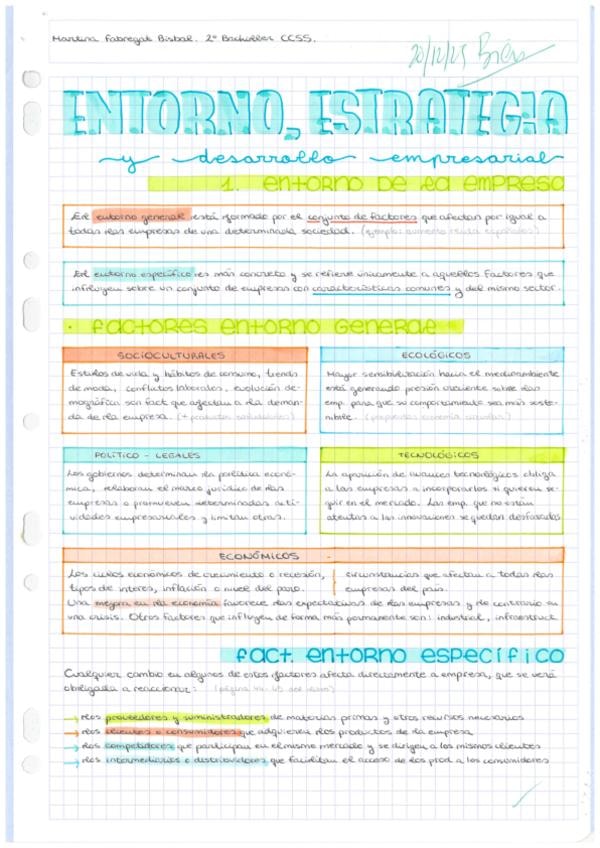 Martina Fabregat Bisbal. 2º Bachiller CCSS.
20/12/23 Bien
ENTORNO, ESTRATEGIA
y desarrollo empresarial
1. ENTORNO DE LA EMPRESA
El entorno general está formado por el conjunto de factores que afectan por igual a
todas las empresas de una determinada sociedad. (ejemplo: aumento renta españoles)
El entorno específico es más concreto y se refiere únicamente a aquellos factores que
influyen sobre un conjunto de empresas con características comunes y del mismo sector.
· FACTORES ENTORNO GENERAL
SOCIOCULTURALES
Estilos de vida y hábitos de consumo, trends
de moda, conflictos laborales, evolución de-
mográfica son fact que afectan a la deman-
da de la empresa. (+ productos saludables)
ECOLÓGICOS
Mayor sensibilización hacia el medioambiente
está generando presión creciente sobre las
emp. para que su comportamiento sea más soste-
nible. (propuestas economía circular)
POLÍTICO - LEGALES
Los gobiernos determinan la política econó-
mica, elaboran el marco jurídico de las
empresas o promueven determinadas acti-
vidades empresariales y limitan otras.
TECNOLÓGICOS
La aparición de avances tecnológicos obliga
a las empresas a incorporarlos si quieren se-
guir en el mercado. Las emp. que no están
atentas a las innovaciones se quedan desfasadas
ECONÓMICOS
Los ciclos económicos de crecimiento o recesión,
tipos de interés, inflación o nivel del paro.
circunstancias que afectan a todas las
empresas del país.
Una mejora en la economía favorece las expectativas de las empresas y lo contrario en
una crisis. Otros factores que influyen de forma más permanente son: industrial, infraestruct.
FACT. ENTORNO ESPECÍFICO
Cualquier cambio en algunos de estos factores afecta directamente a empresa, que se verá
obligada a reaccionar: (página 44-45 del libro)
→ los proveedores y suministradores de materias primas y otros recursos necesarios
→ los clientes o consumidores que adquieren los productos de la empresa
→ los competidores que participan en el mismo mercado y se dirigen a los mismos clientes
→ los intermediarios o distribuidores que facilitan el acceso de los prod a los consumidores